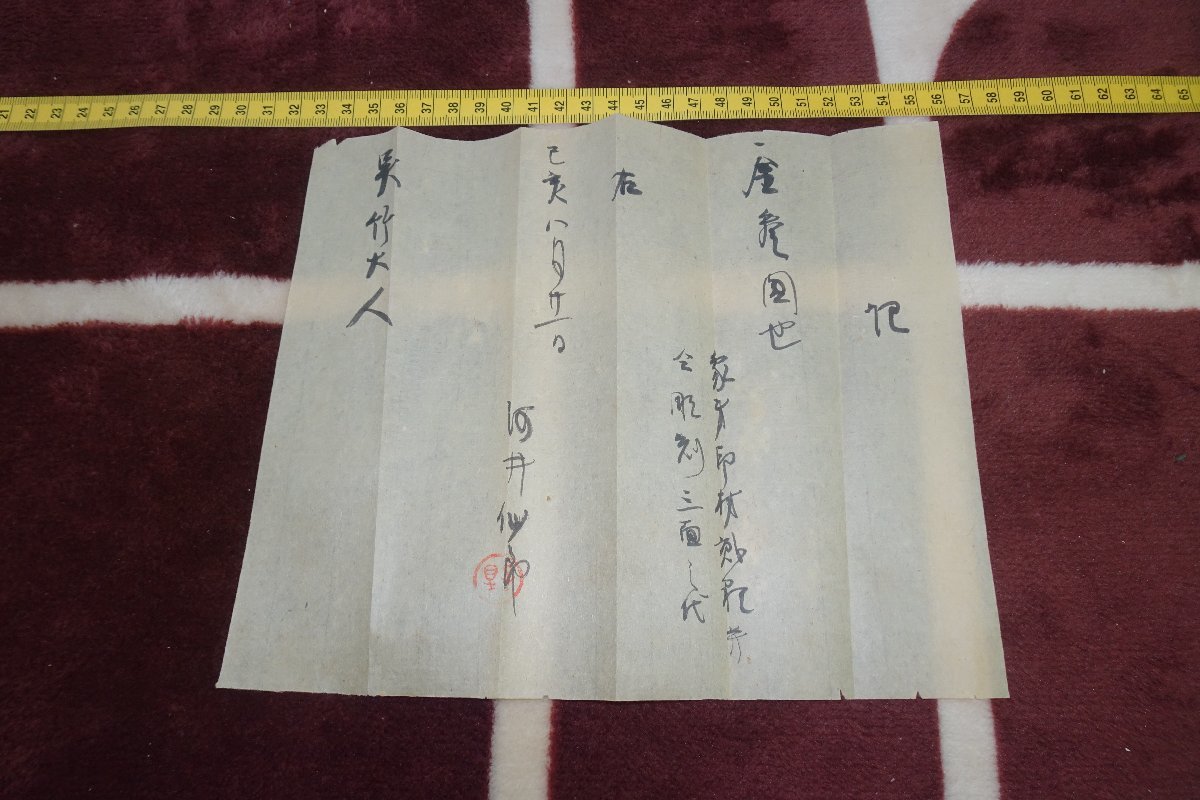 記
一金參圓也
象牙印材 并
仝彫刻三面之代
右
己亥八月廿一日
河井仙郎
吴竹大人
21 22 23 24 25 26 27 28 29 30 31 32 33 34 35 36 37 38 39 40 41 42 43 44 45 46 47 48 49 50 51 52 53 54 55 56 57 58 59 60 61 62 63 64 65